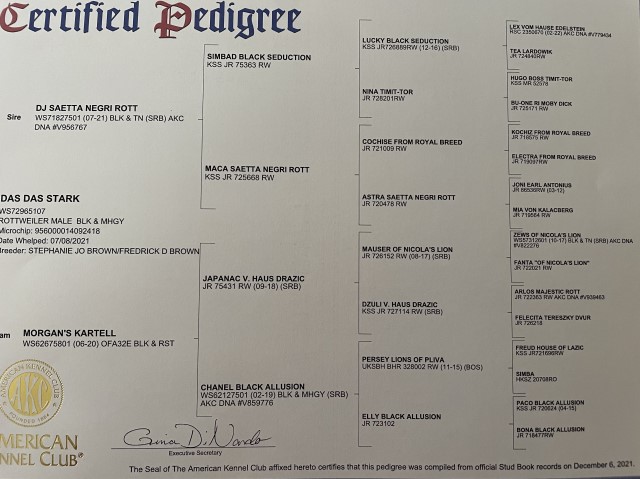 Certified Pedigree
DJ SAETTA NEGRI ROTT
Sire
WS71827501 (07-21) BLK & TN (SRB) AKC
DNA #V956767
DAS DAS STARK
WS72965107
ROTTWEILER MALE BLK & MHGY
Microchip: 956000014092418
Date Whelped: 07/08/2021
Breeder: STEPHANIE JO BROWN/FREDRICK D BROWN
am
MORGAN'S KARTELL
WS62675801 (06-20) OFA32E BLK & RST
SIMBAD BLACK SEDUCTION
KSS JR 75363 RW
MACA SAETTA NEGRI ROTT
KSS JR 725668 RW
JAPANAC V. HAUS DRAZIC
JR 75431 RW (09-18) (SRB)
CHANEL BLACK ALLUSION
WS62127501 (02-19) BLK & MHGY (SRB)
AKC DNA #V859776
LUCKY BLACK SEDUCTION
KSS JR726889RW (12-16) (SRB)
NINA TIMIT-TOR
JR 728201RW
COCHISE FROM ROYAL BREED
JR 721009 RW
ASTRA SAETTA NEGRI ROTT
JR 720478 RW
MAUSER OF NICOLA'S LION
JR 726152 RW (08-17) (SRB)
DZULI V. HAUS DRAZIC
KSS JR 727114 RW (SRB)
PERSEY LIONS OF PLIVA
UKSBH BHR 328002 RW (11-15) (BOS)
ELLY BLACK ALLUSION
JR 723102
LEX VOM HAUSE EDELSTEIN
RSC 2350870 (02-22) AKC DNA #V779434
TEA LARDOWIK
JR 724840RW
HUGO BOSS TIMIT-TOR
KSS MR 52578
BU-ONE RI MOBY DICK
JR 725171 RW
KOCHIZ FROM ROYAL BREED
JR 716575 RW
ELECTRA FROM ROYAL BREED
JR 719097RW
JONI EARL ANTONIUS
JR 86536RW (03-12)
MIA VON KALACBERG
JR 719564 RW
ZEWS OF NICOLA'S LION
WS57312601 (10-17) BLK & TN (SRB) AKC DNA
#V822276
FANTA "OF NICOLA'S LION"
JR 722021 RW
ARLOS MAJESTIC ROTT
JR 722363 RW AKC DNA #V939463
FELECITA TERESZKY DVUR
JR 726218
FREUD HOUSE OF LAZIC
KSS JR721696RW
SIMBA
HKSZ 20708RO
PACO BLACK ALLUSION
KSS JR 720624 (04-15)
BONA BLACK ALLUSION
JR 718477RW
AMERICAN KENNEL CLUB
AKC
FOUNDED 1884
MERICAN
NNEL CLUB®
Gina DiNardo
Executive Secretary
The Seal of The American Kennel Club affixed hereto certifies that this pedigree was compiled from official Stud Book records on December 6, 2021.